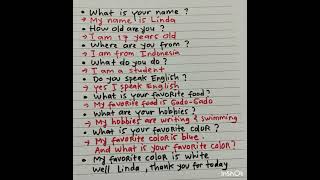 • What is your name ?
→ My name is Linda
• How old are you ?
→ I am 17 years old
• Where are you from ?
→ I am from Indonesia
• What do you do ?
→ I am a student
• Do you speak English ?
→ yes I speak English
• What is your favorite food ?
→ My favorite food is Gado-Gado
• What are your hobbies ?
→ My hobbies are writing & swimming
• What is your favorite color ?
→ My favorite color is blue.
And what is your favorite color ?
• My favorite color is white
Well Linda, Thank you for today
INSHOT